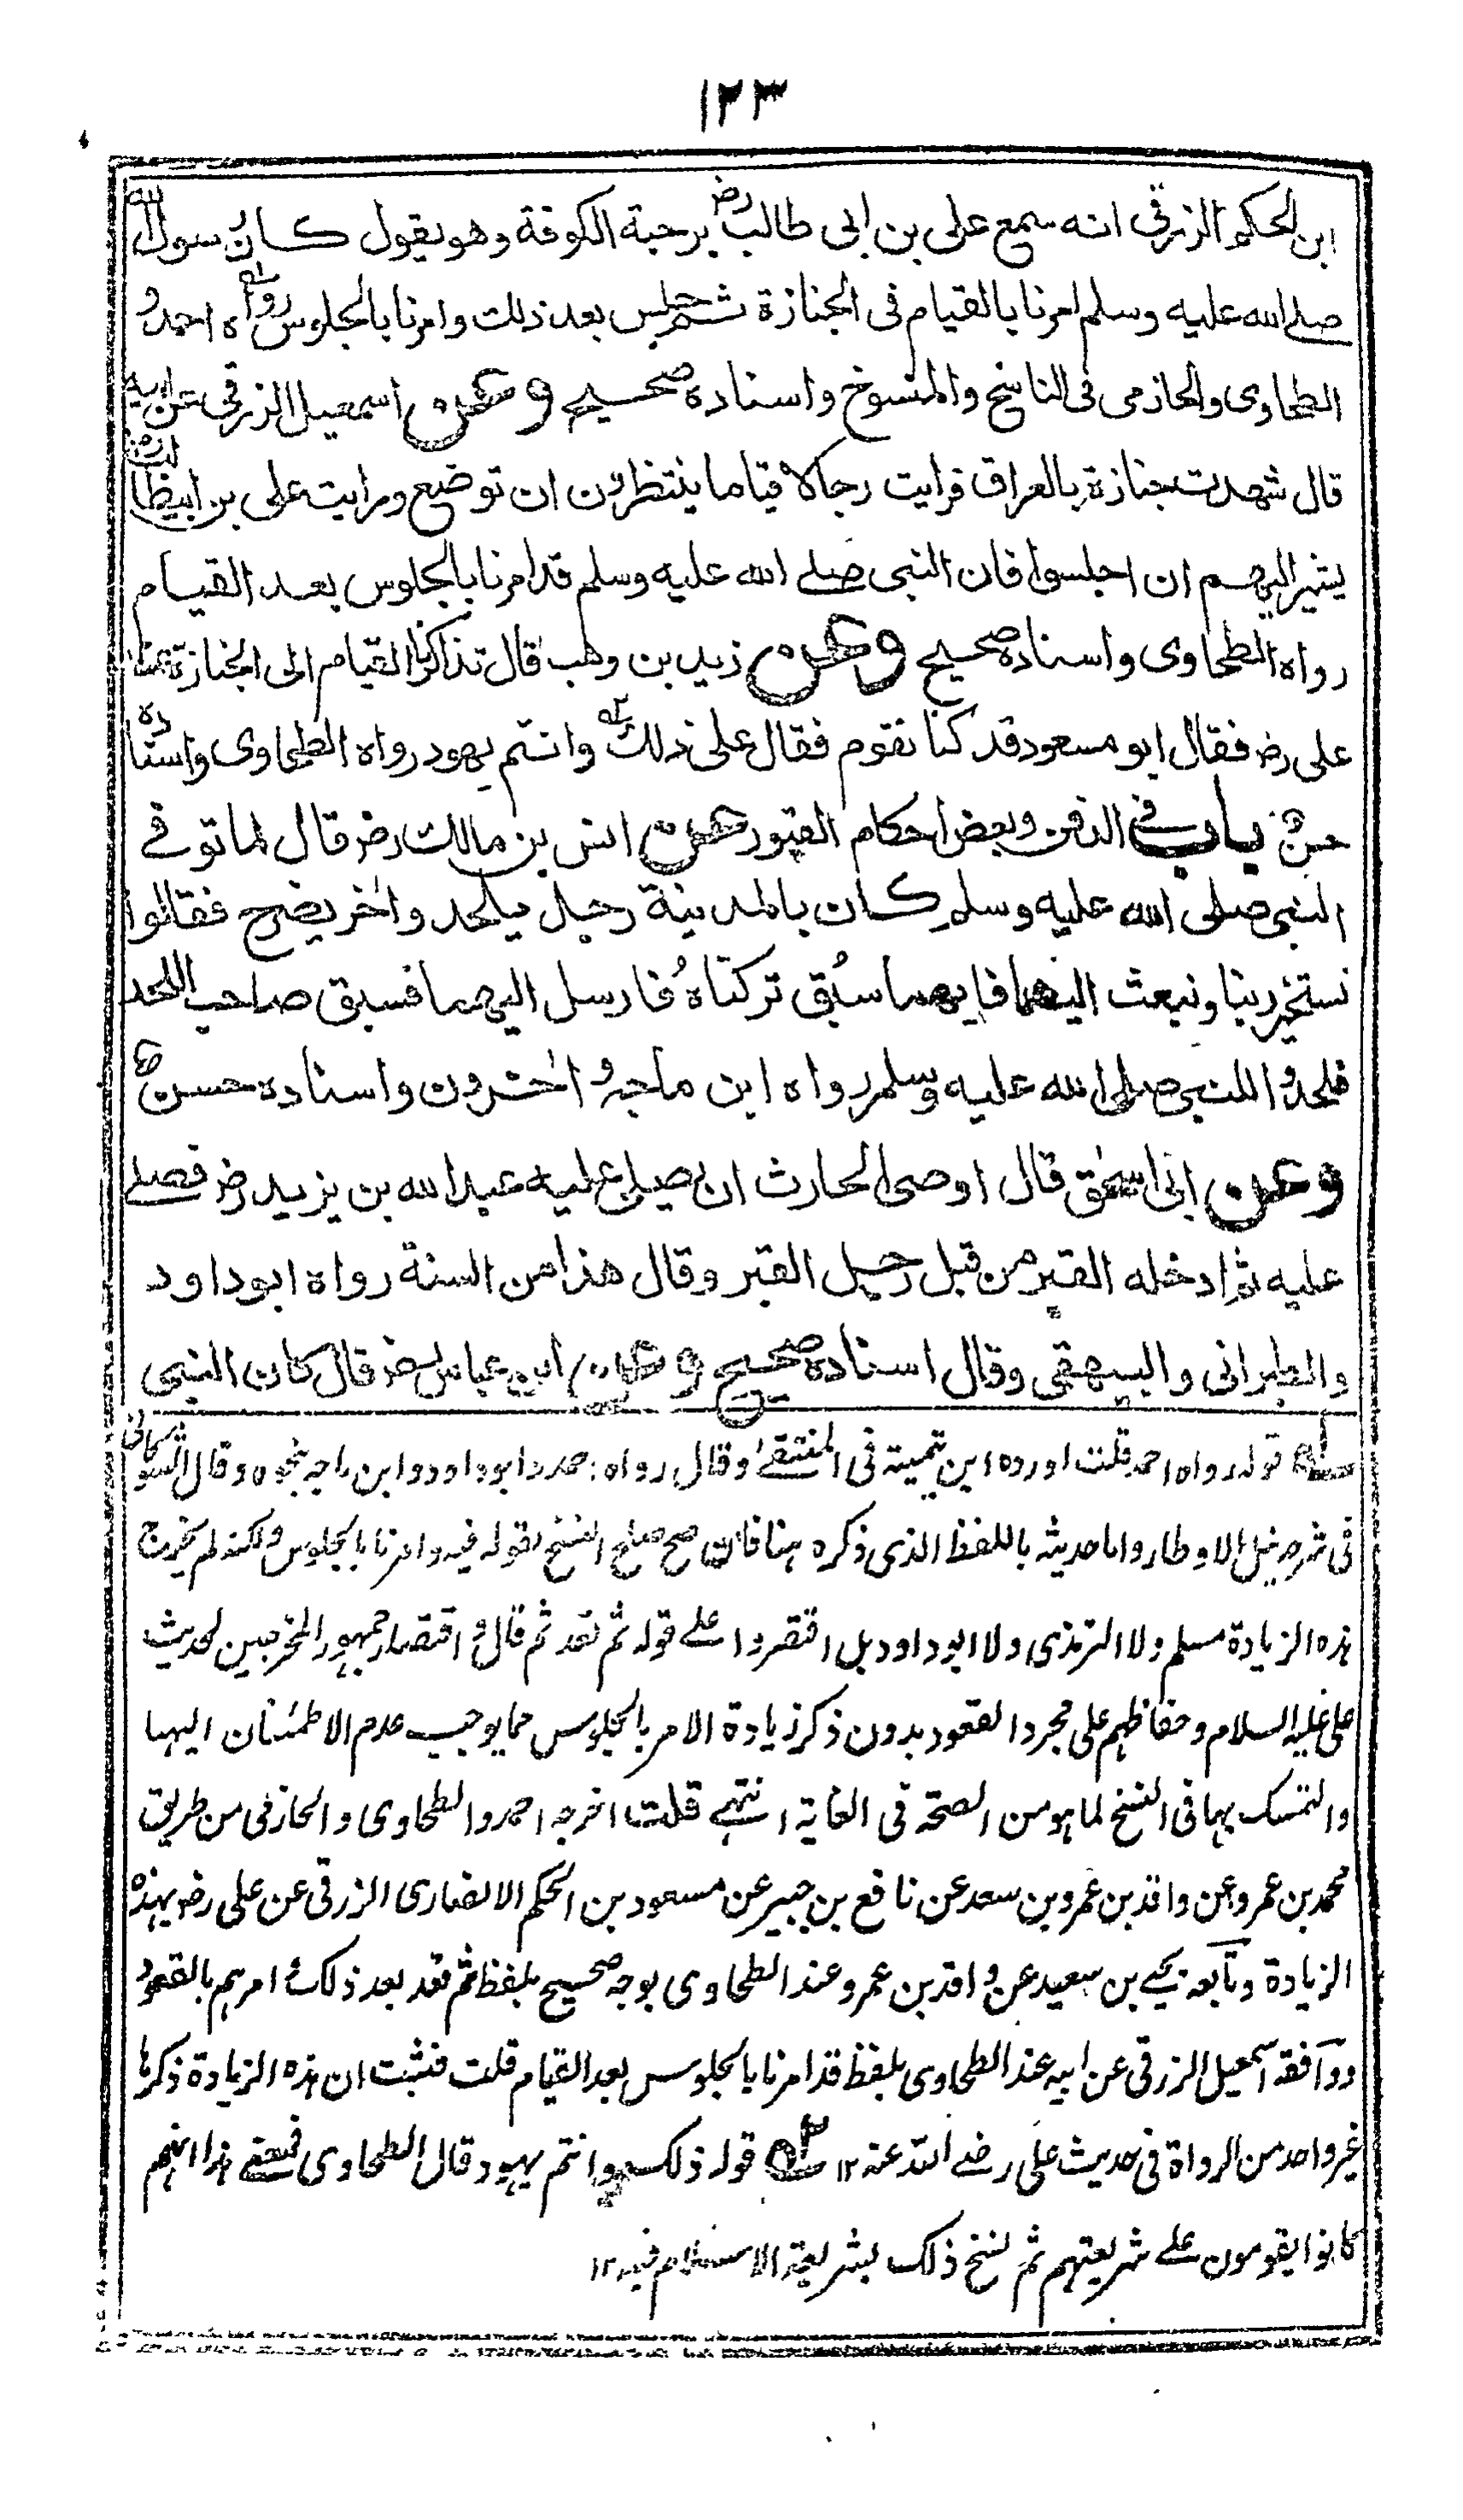 ١٢٣
ابن الحكم الزرقي انه سمع على بن ابى طالب رض برحبة الكوفة وهو يقول كان رسول الله
صلى الله عليه وسلم امرنا بالقيام فى الجنازة ثم جلس بعد ذلك وامرنا بالجلوس رواه احمد و
الطحاوى والحازمى فى الناسخ والمنسوخ واسناده صحيح وعن اسمعيل الزرقى عن ابيه
قال شهدت جنازة بالعراق فرايت رجالا قياما ينتظرون ان توضع ورايت على بن ابيطالب رض
يشير اليهم ان اجلسوا فان النبى صلى الله عليه وسلم قد امرنا بالجلوس بعد القيام
رواه الطحاوى واسناده صحيح وعن زيد بن وهب قال تذاكرنا القيام الى الجنازة عند
على رض فقال ابو مسعود قد كنا نقوم فقال على ذلك وانتم يهود رواه الطحاوى واسناده
حسن باب فى الدفن وبعض احكام القبور عن انس بن مالك رض قال لما توفى
النبى صلى الله عليه وسلم كان بالمدينة رجل يلحد واخر يضرح فقالوا
نستخير ربنا ونبعث اليهما فايهما سبق تركناه فارسل اليهما فسبق صاحب اللحد
فلحدوا للنبى صلى الله عليه وسلم رواه ابن ماجه واخرون واسناده حسن
وعن ابى اسحق قال اوصى الحارث ان يصلى عليه عبد الله بن يزيد رض فصلى
عليه ثم ادخله القبر من قبل رجل القبر وقال هذا من السنة رواه ابو داود
والطبرانى والبيهقى وقال اسناده صحيح وعن ابن عباس رض قال كان النبى
قوله رواه احمد قلت اورده ابن تيمية فى المنتقى وقال رواه احمد وابو داود وابن ماجه بنحوه وقال الشوكانى
فى شرحه نيل الاوطار واما حديثه باللفظ الذى ذكره هنا فان صح صلح النسخ بقوله فيه وامرنا بالجلوس ولكنه لم يخرج
هذه الزيادة مسلم ولا الترمذى ولا ابو داود بل اقتصروا على قوله ثم قعد ثم قال واقتصار جمهور المخرجين لحديث
على عليه السلام وحفاظهم على مجرد القعود بدون ذكر زيادة الامر بالجلوس مما يوجب عدم الاطمئنان اليها
والتمسك بها فى النسخ لما هو من الصحة فى الغاية انتهى قلت اخرجه احمد والطحاوى والحازمى من طريق
محمد بن عمرو عن واقد بن عمرو بن سعد عن نافع بن جبير عن مسعود بن الحكم الانصارى الزرقى عن على رض بهذه
الزيادة وتابعه يحيى بن سعيد عن واقد بن عمرو عند الطحاوى بوجه صحيح بلفظ ثم قعد بعد ذلك امرهم بالقعود
ووافقه اسمعيل الزرقى عن ابيه عند الطحاوى بلفظ قد امرنا بالجلوس بعد القيام قلت فثبت ان هذه الزيادة ذكرها
غير واحد من الرواة فى حديث على رضى الله عنه ١٢ قوله ذلك وانتم يهود قال الطحاوى فمعنى هذا انهم
كانوا يقومون على شريعتهم ثم نسخ ذلك بشريعة الاسلام فيه ١٢